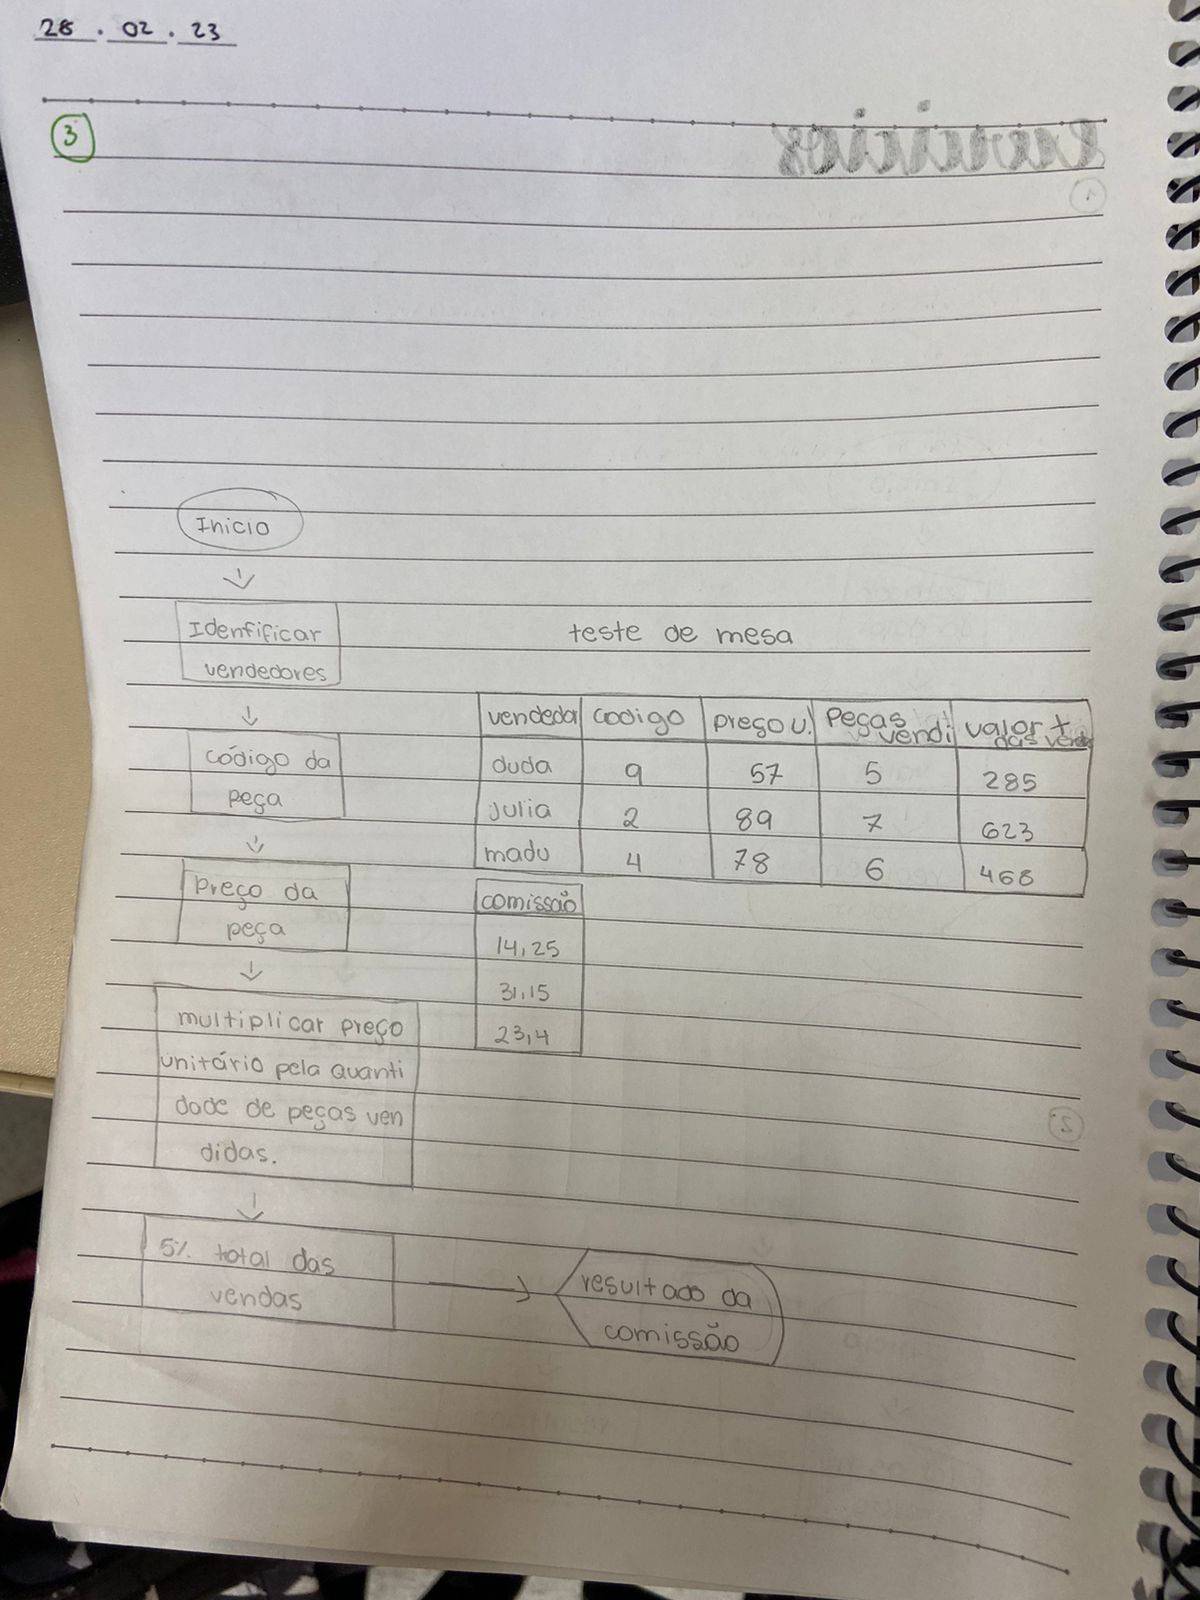 28 . 02 . 23
3
Exercícios
Inicio
Idenfificar
vendedores
código da
peça
Preço da
peça
multiplicar preço
unitário pela quanti
dade de peças ven
didas.
5% total das
vendas
resultado da
comissão
teste de mesa
vendedor codigo preço u. Peças vendi valor t das vend
duda 9 57 5 285
julia 2 89 7 623
madu 4 78 6 468
comissão
14,25
31,15
23,4